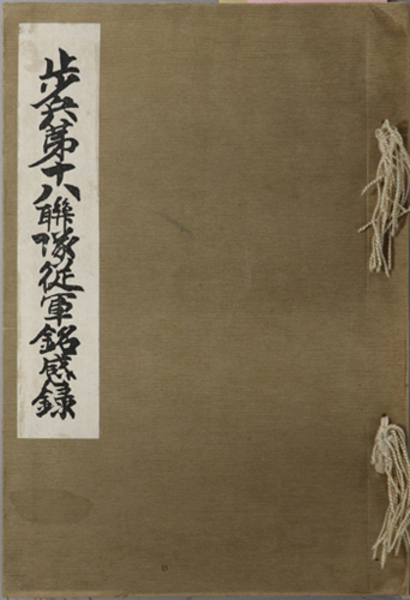 歩兵第十八聯隊従軍銘感録